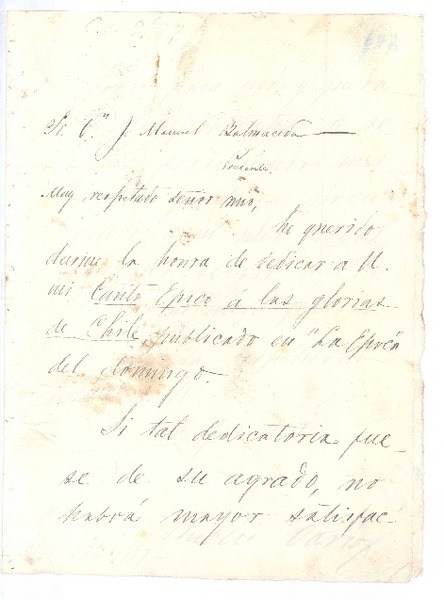 647
Sr. Dn J. Manuel Balmaceda
Presente.
Muy respetado señor mío,
he querido
darme la honra de dedicar a U.
mi Canto Epico á las glorias
de Chile, publicado en "La Epoca"
del domingo.
Si tal dedicatoria fue-
se de su agrado, no
habrá mayor satisfac-